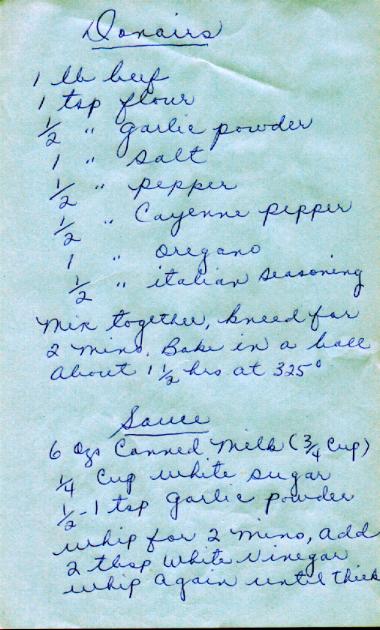 Donairs
1 lb beef
1 tsp flour
1/2 " garlic powder
1 " salt
1/2 " pepper
1/2 " Cayenne pepper
1 " oregano
1/2 " italian seasoning
Mix together, kneed for
2 mins. Bake in a ball
about 1 1/2 hrs at 325°
Sauce
6 ozs Canned Milk (3/4 Cup)
1/4 Cup white sugar
1/2 - 1 tsp garlic powder
whip for 2 mins, add
2 tbsp white Vinegar
whip again until thick